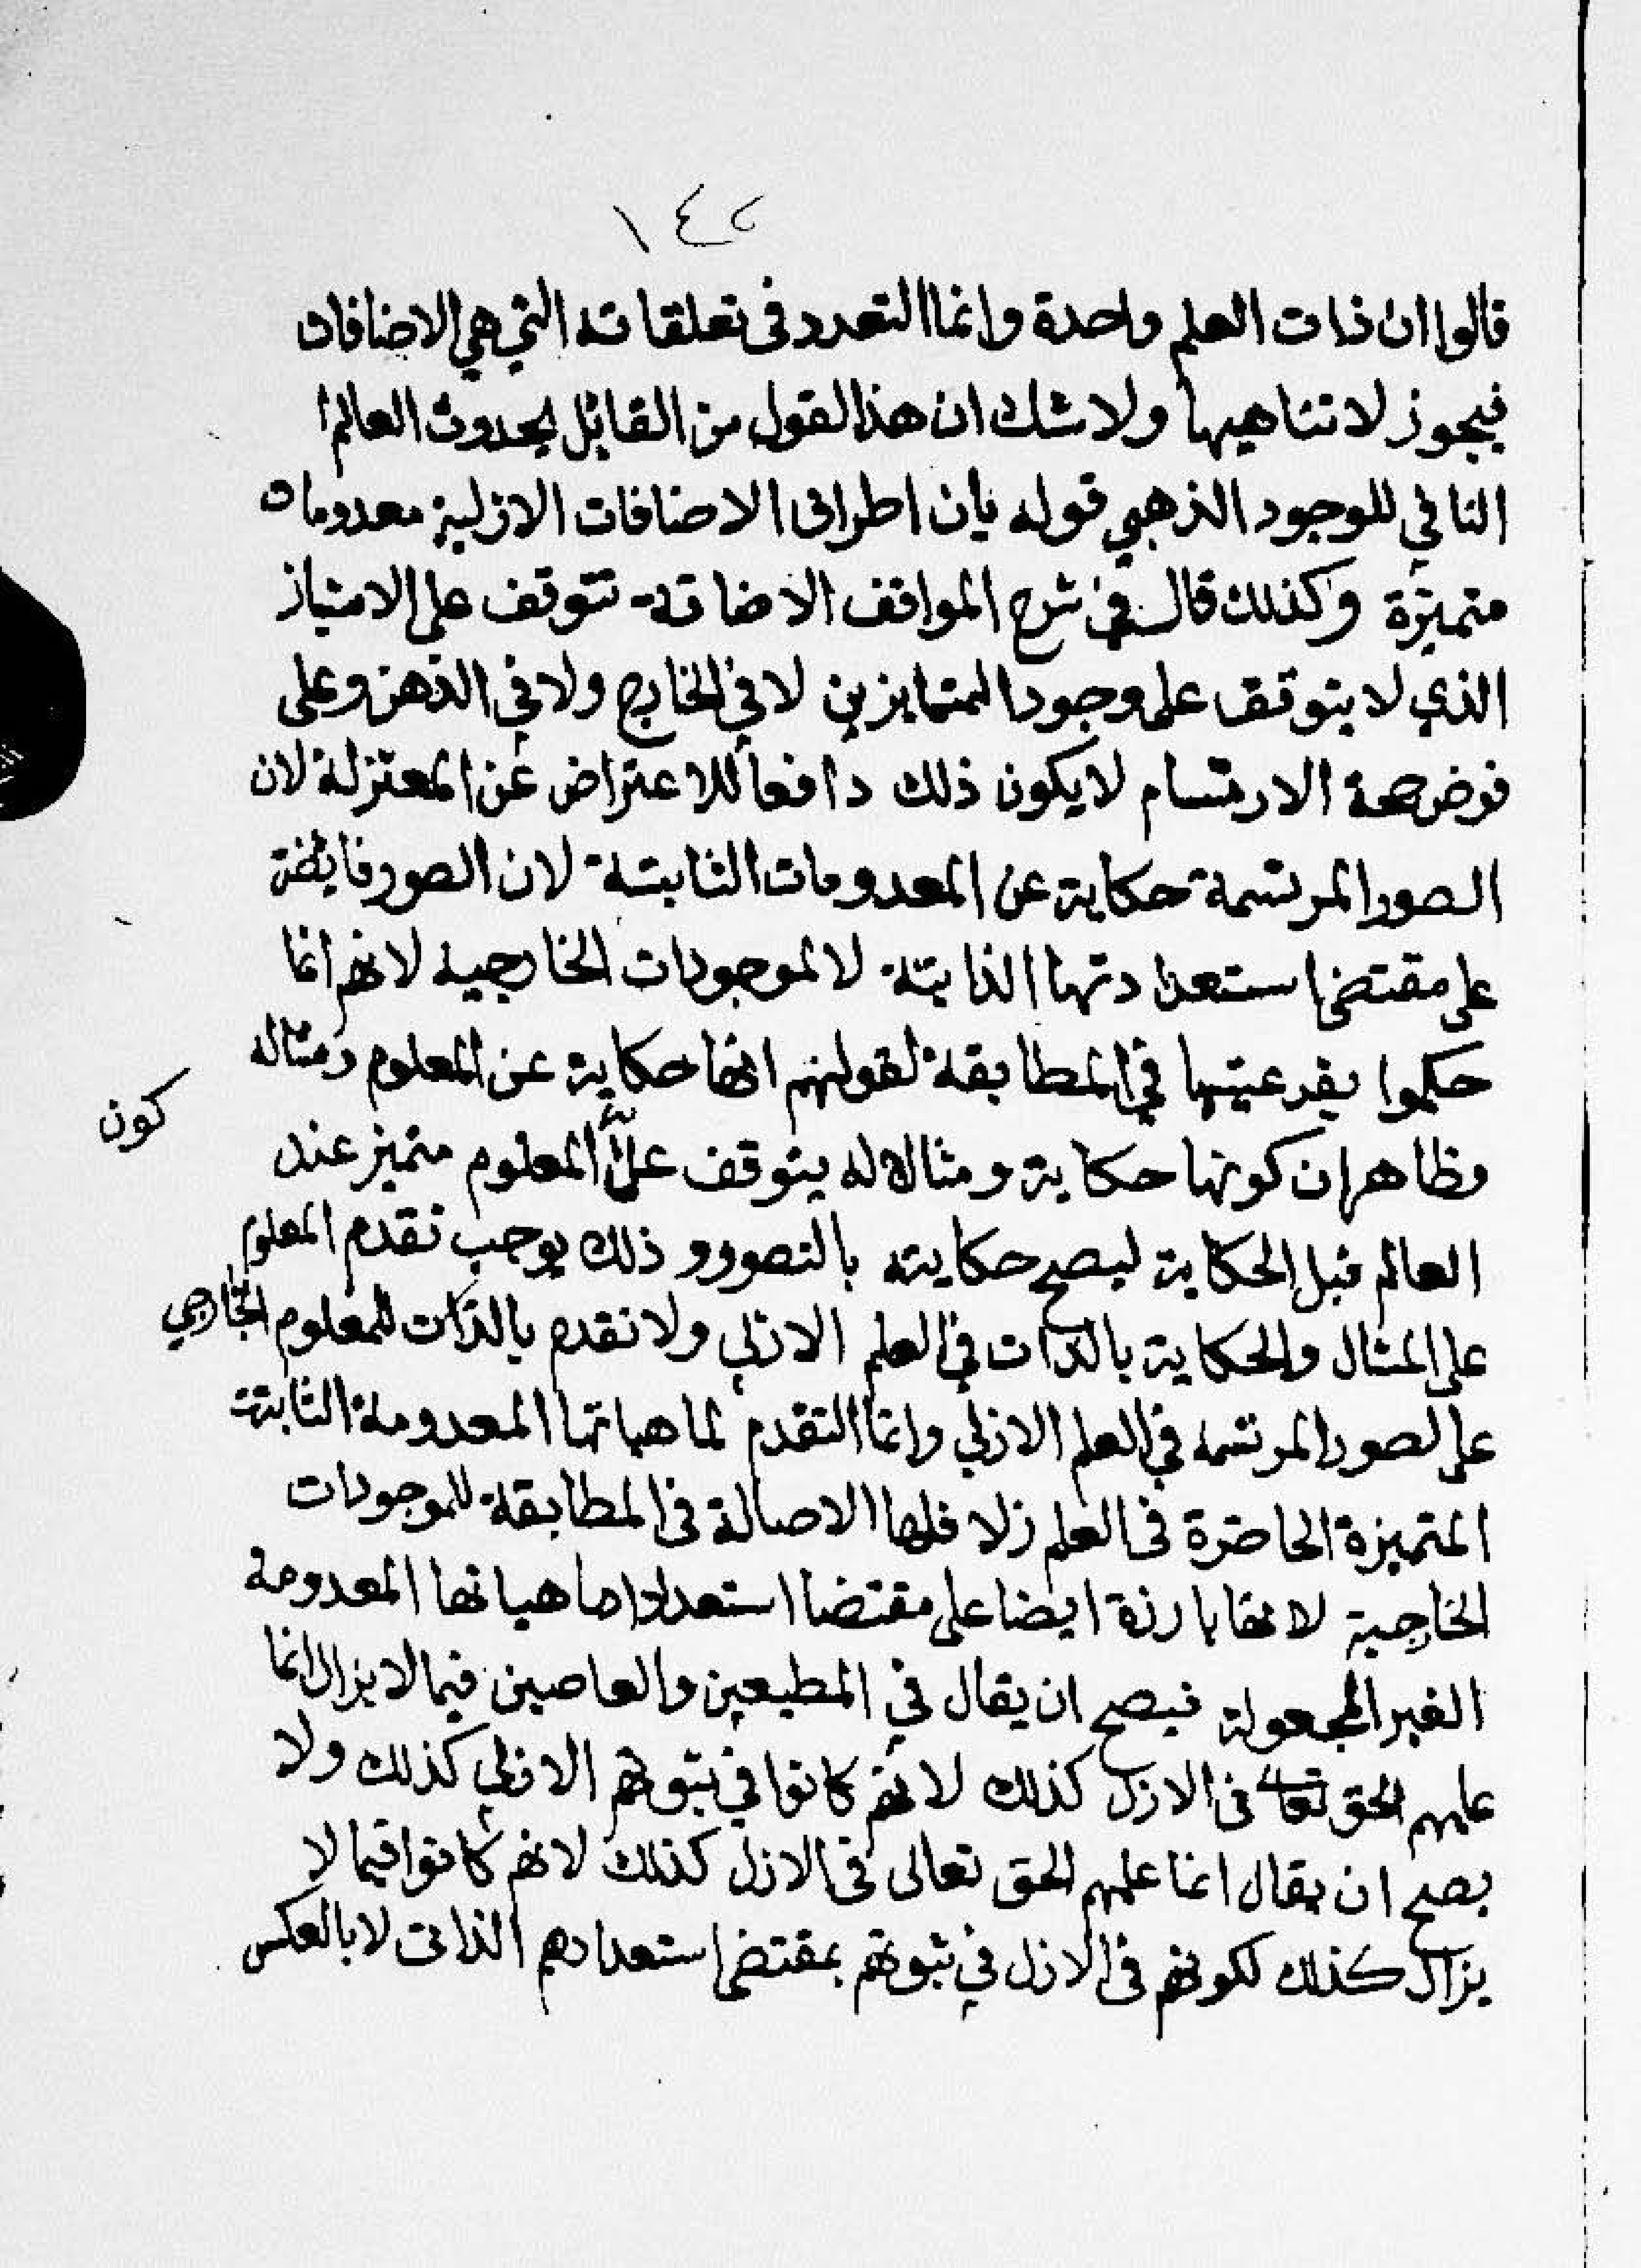 ١٤٢
قالوا ان ذات العلم واحدة وانما التعدد فى تعلقاته التي هي الاضافات
فيجوز لا تناهيها ولا شك ان هذا القول من القائل بحدوث العالم
النافي للوجود الذهبي قوله بان اطراف الاضافات الازلية معدومات
متميزة وكذلك قال في شرح المواقف الاضافة تتوقف على الامتياز
الذي لا يتوقف على وجود المتمايزين لا في الخارج ولا في الذهن وعلى
فرض صحة الارتسام لا يكون ذلك دافعا للاعتراض عن المعتزلة لان
الصور المرتسمة حكاية عن المعدومات الثابتة لان الصور فايضة
على مقتضى استعدادتها الذاتية لا لموجودات الخارجية لانهم انما
حكموا بفرعيتها في المطابقة لقولهم انها حكاية عن المعلوم ومثاله
وظاهر ان كونها حكاية ومثالا له يتوقف على المعلوم متميز عند
كون
العالم قبل الحكاية ليصح حكايته بالتصور وذلك يوجب تقدم المعلوم
على المثال والحكاية بالذات في العلم الازلي ولا تقدم بالذات للمعلوم الخارجي
على الصور المرتسمه في العلم الازلي وانما التقدم لماهياتها المعدومة الثابتة
المتميزة الحاضرة فى العلم زلا فلها الاصالة فى المطابقة للموجودات
الخارجية لانها بارزة ايضا على مقتضا استعدادا ماهياتها المعدومة
الغير المجعولة فيصح ان يقال في المطيعين والعاصين فيما لا يزال انما
علمهم الحق تعالى فى الازل كذلك لانهم كانوا في ثبوتهم الازلي كذلك ولا
يصح ان يقال انما علمهم الحق تعالى فى الازل كذلك لانهم كانوا فيما لا
يزال كذلك لكونهم فى الازل في ثبوتهم بمقتضى استعدادهم الذاتى لا بالعكس